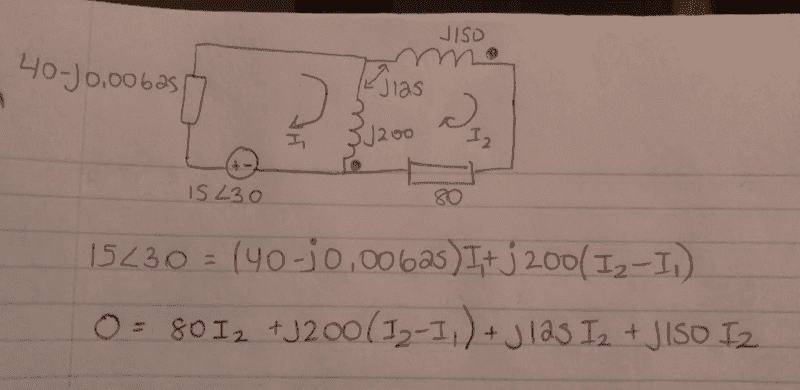 J150
40-j0,00625
J125
I1
J200
I2
+-
15∠30
80
15∠30 = (40-j0,00625)I1+j200(I2-I1)
0 = 80I2 +J200(I2-I1)+J125I2+J150I2